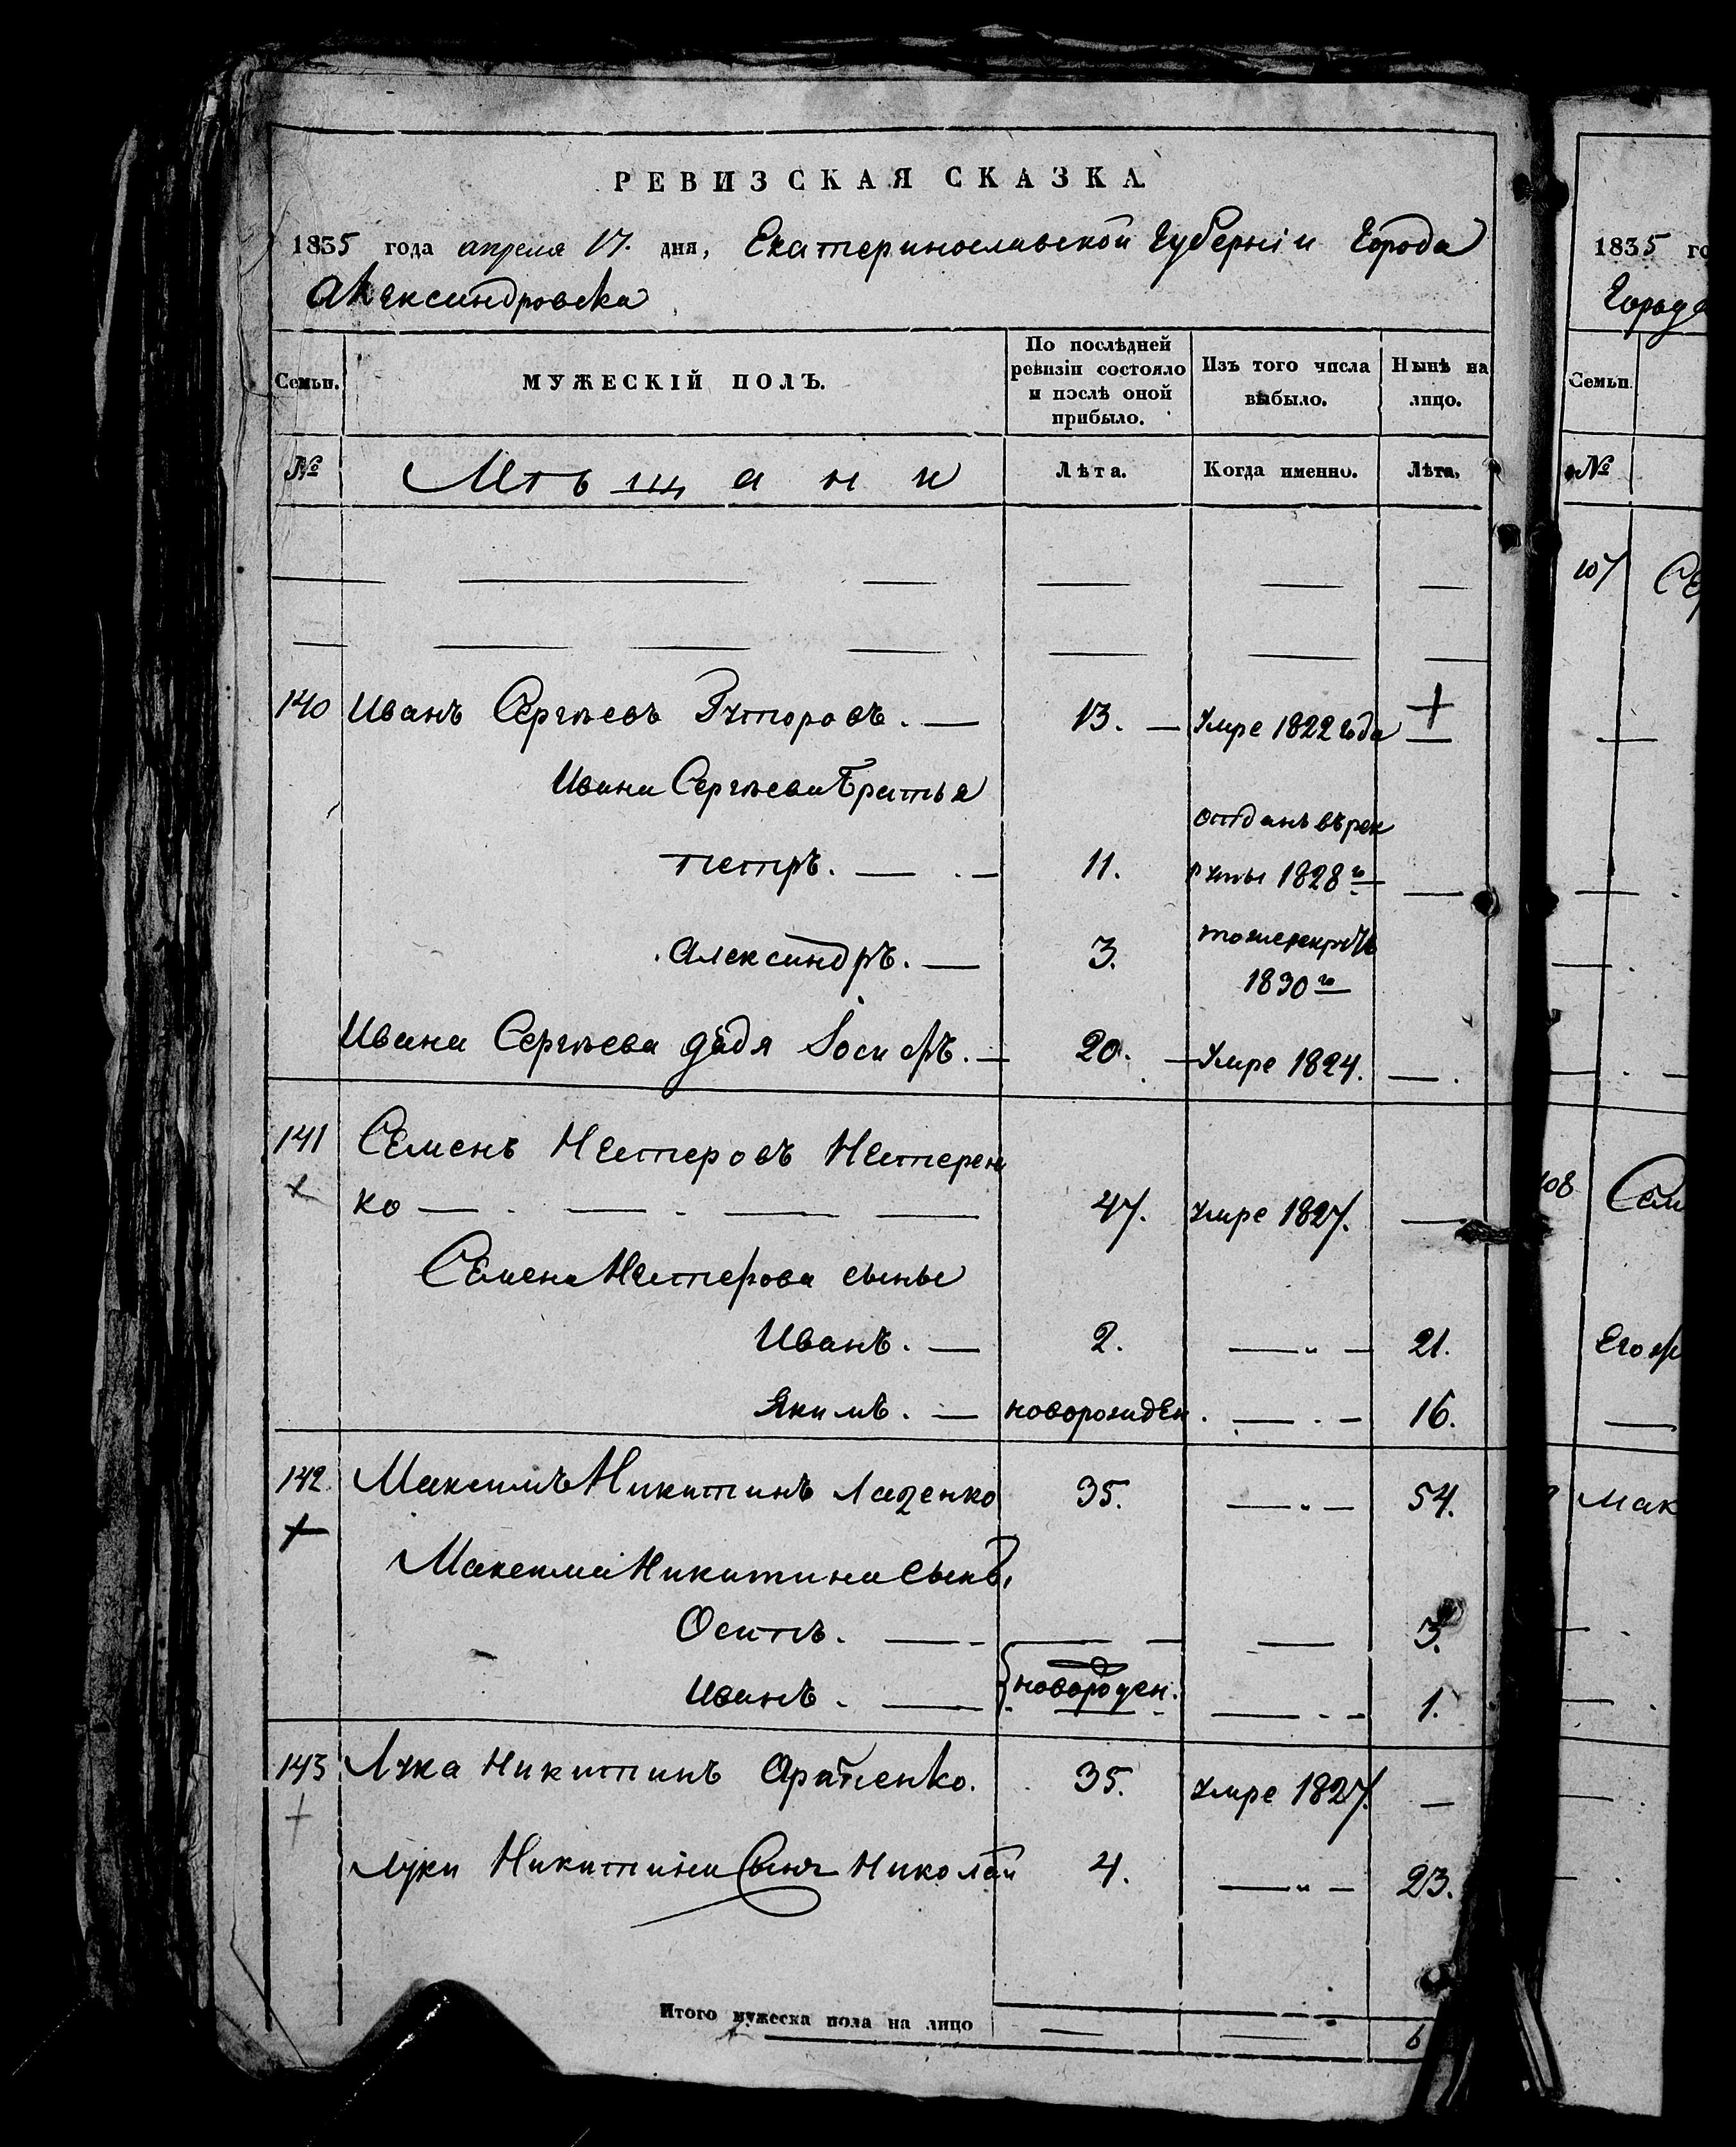 РЕВИЗСКАЯ СКАЗКА
1835 года апреля 17. дня, Екатеринославской Губерніи Города
Александровска
Семьи.
МУЖЕСКІЙ ПОЛЪ.
По послѣдней ревизіи состояло и послѣ оной прибыло.
Изъ того числа выбыло.
Нынѣ на лицо.
№
Мѣщани
Лѣта.
Когда именно.
Лѣта.
140 Иванъ Сергѣевъ 13. Умре 1822 года
Ивана Сергѣева Братья
Петръ. 11. отданъ въ рек
руты 1828 го
Александръ. 3.
1830 го
Ивана Сергѣева дядя Іосифъ. 20. Умре 1824.
141 Семенъ Нестеровъ Нестерен
ко 47. умре 1827.
Семена Нестерова сыны
Иванъ. 2. 21.
Якимъ. новорожден. 16.
142. Максимъ Никитинъ Ладенко 35. 54.
Максима Никитина Сынъ,
Осипъ. 3.
Иванъ. новорожден. 1.
143 Лука Никитинъ 35. умре 1827.
Луки Никитина Сынъ Николай 4. 23.
Итого мужеска пола на лицо 6
1835 го
Города
Семьи.
№
107
108 Сем
Егож
Мак